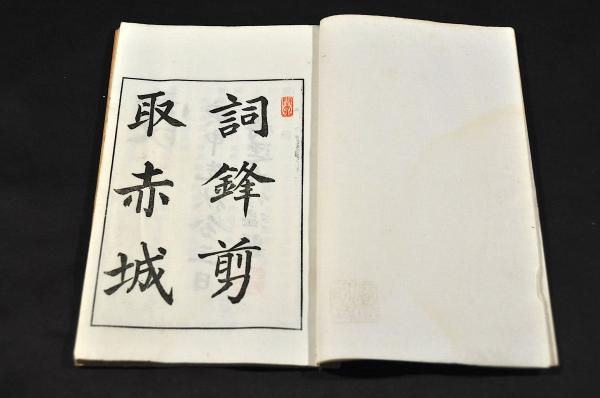 詞鋒剪
取赤城